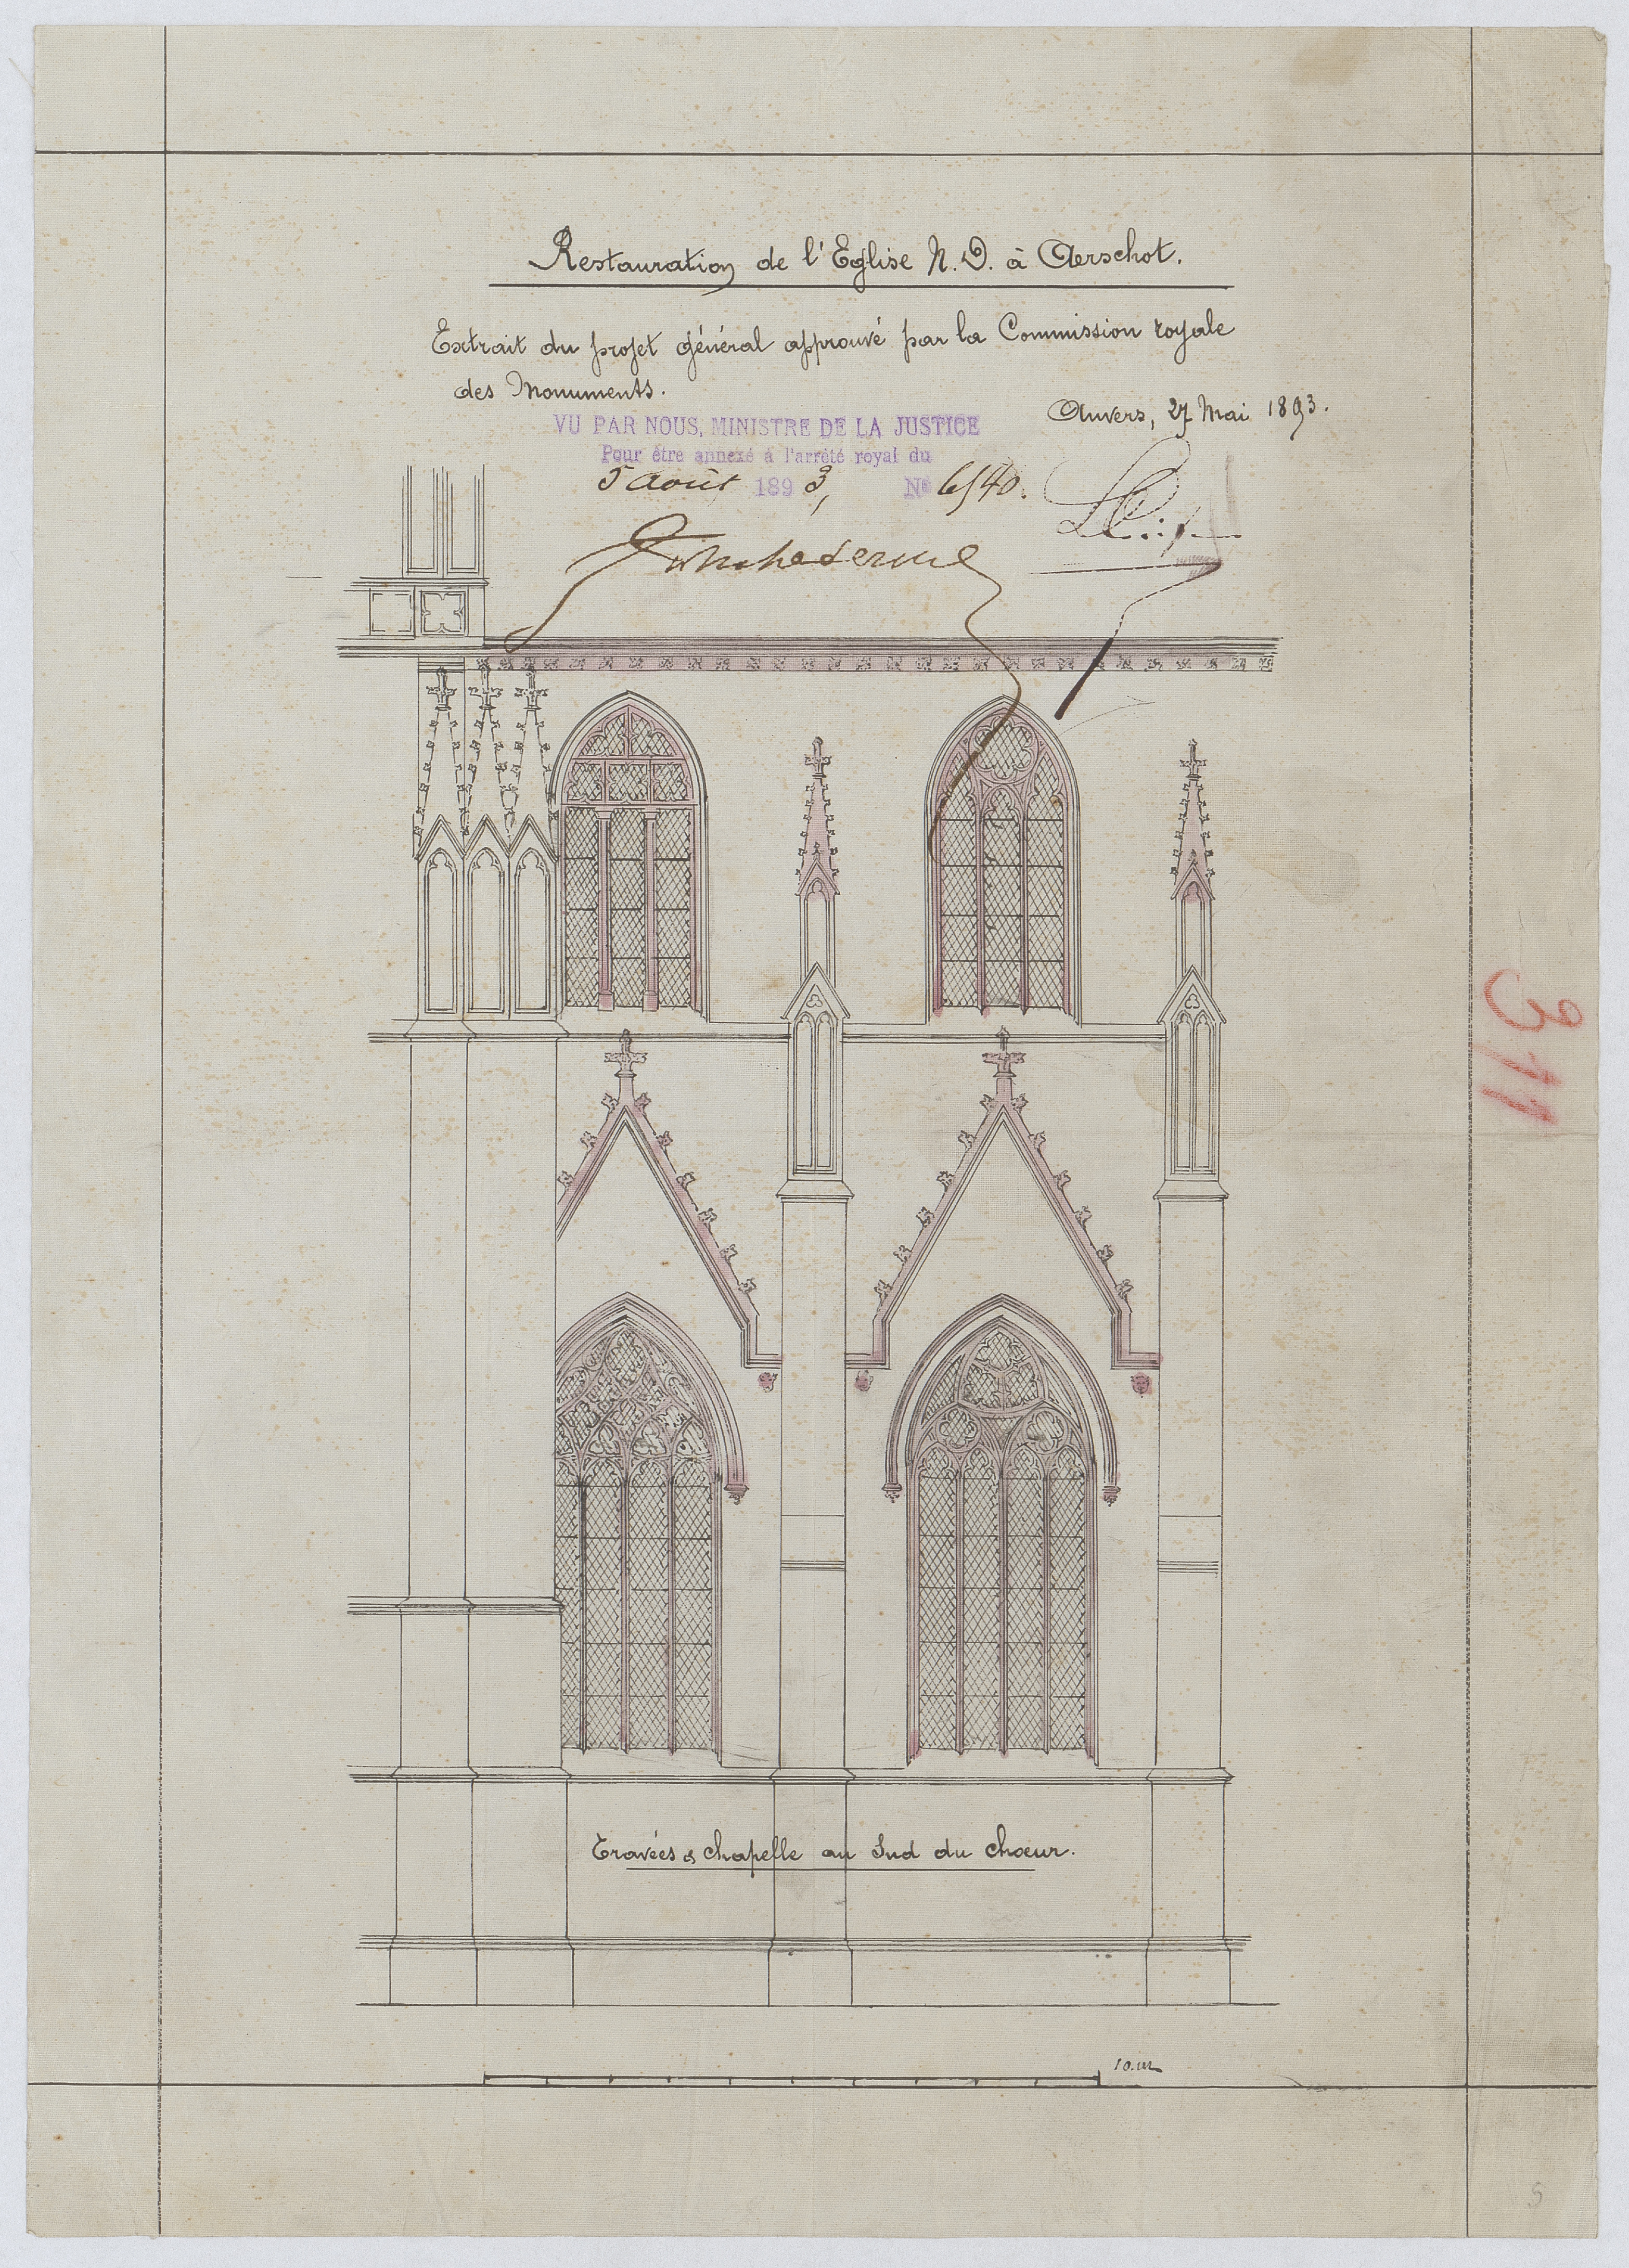 Restauration de l'Eglise N. D. à Aerschot.
Extrait du projet général approuvé par la Commission royale
des Monuments.
Anvers, 27 Mai 1893.
VU PAR NOUS, MINISTRE DE LA JUSTICE
Pour être annexé à l'arrêté royal du
5 août 1893, No
311
Travées & chapelle au Sud du chœur.
10.m
5